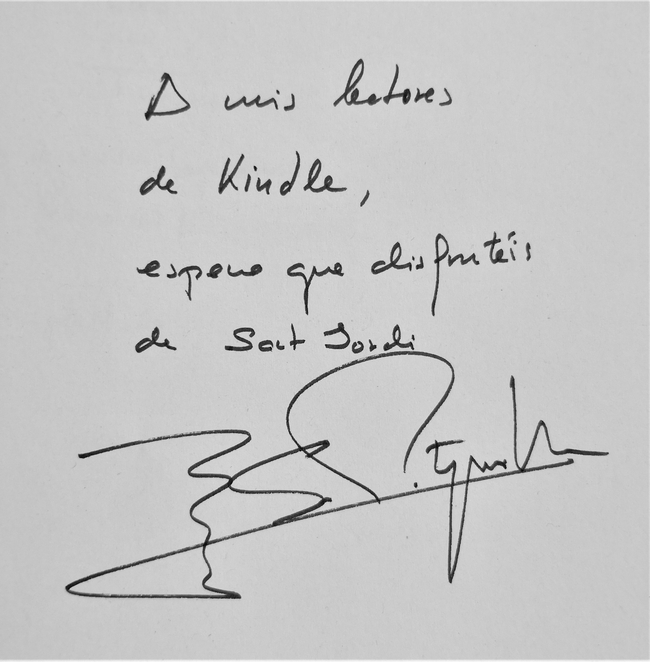 A mis lectores
de Kindle,
espero que disfrutéis
de Sant Jordi